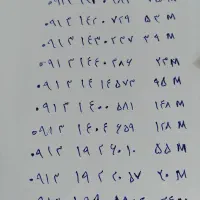 ۰۹۱۳ ۱۴۲۰ ۷۲۹ ۵۳ M
۰۹۱۳ ۱۴۳۰ ۲۳۷ ۳۹ M
۰۹۱۳ ۱۴۴۰ ۲۸۶ ۲۳ M
۰۹۱۳ ۱۴ ۱۴۵۷۳ ۹۵ M
۰۹۱۳ ۱۴۰۰ ۵۸۱ ۱۴۸ M
۰۹۱۳ ۱۴۰۴ ۶۵۹ ۱۲۸ M
۰۹۱۳ ۱۹۲ ۶۰۱۰ ۵۵ M
۰۹۱۳ ۱۹۲ ۲۰۵۷ ۲۰ M